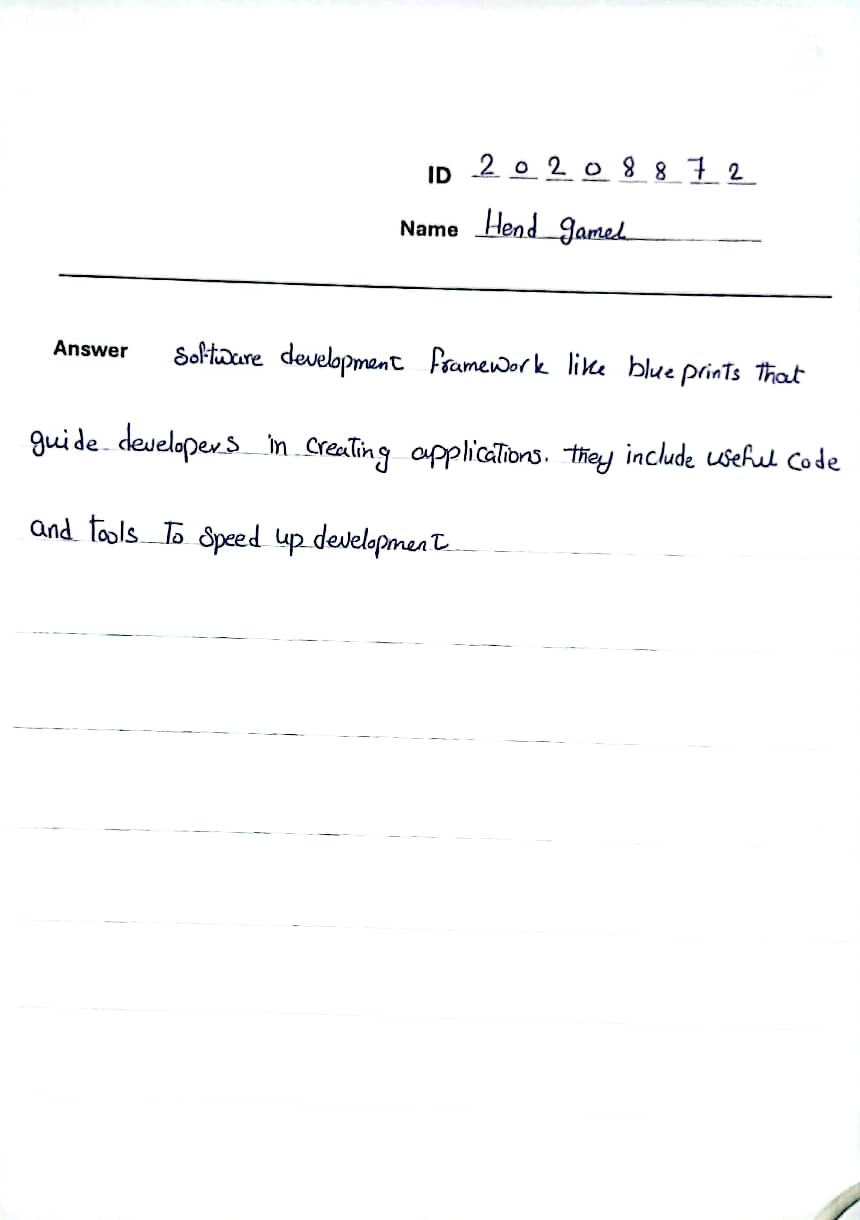 ID 20208872
Name Hend gamel
Answer Software development framework like blue prints that
guide developers in creating applications. they include useful code
and tools To speed up development